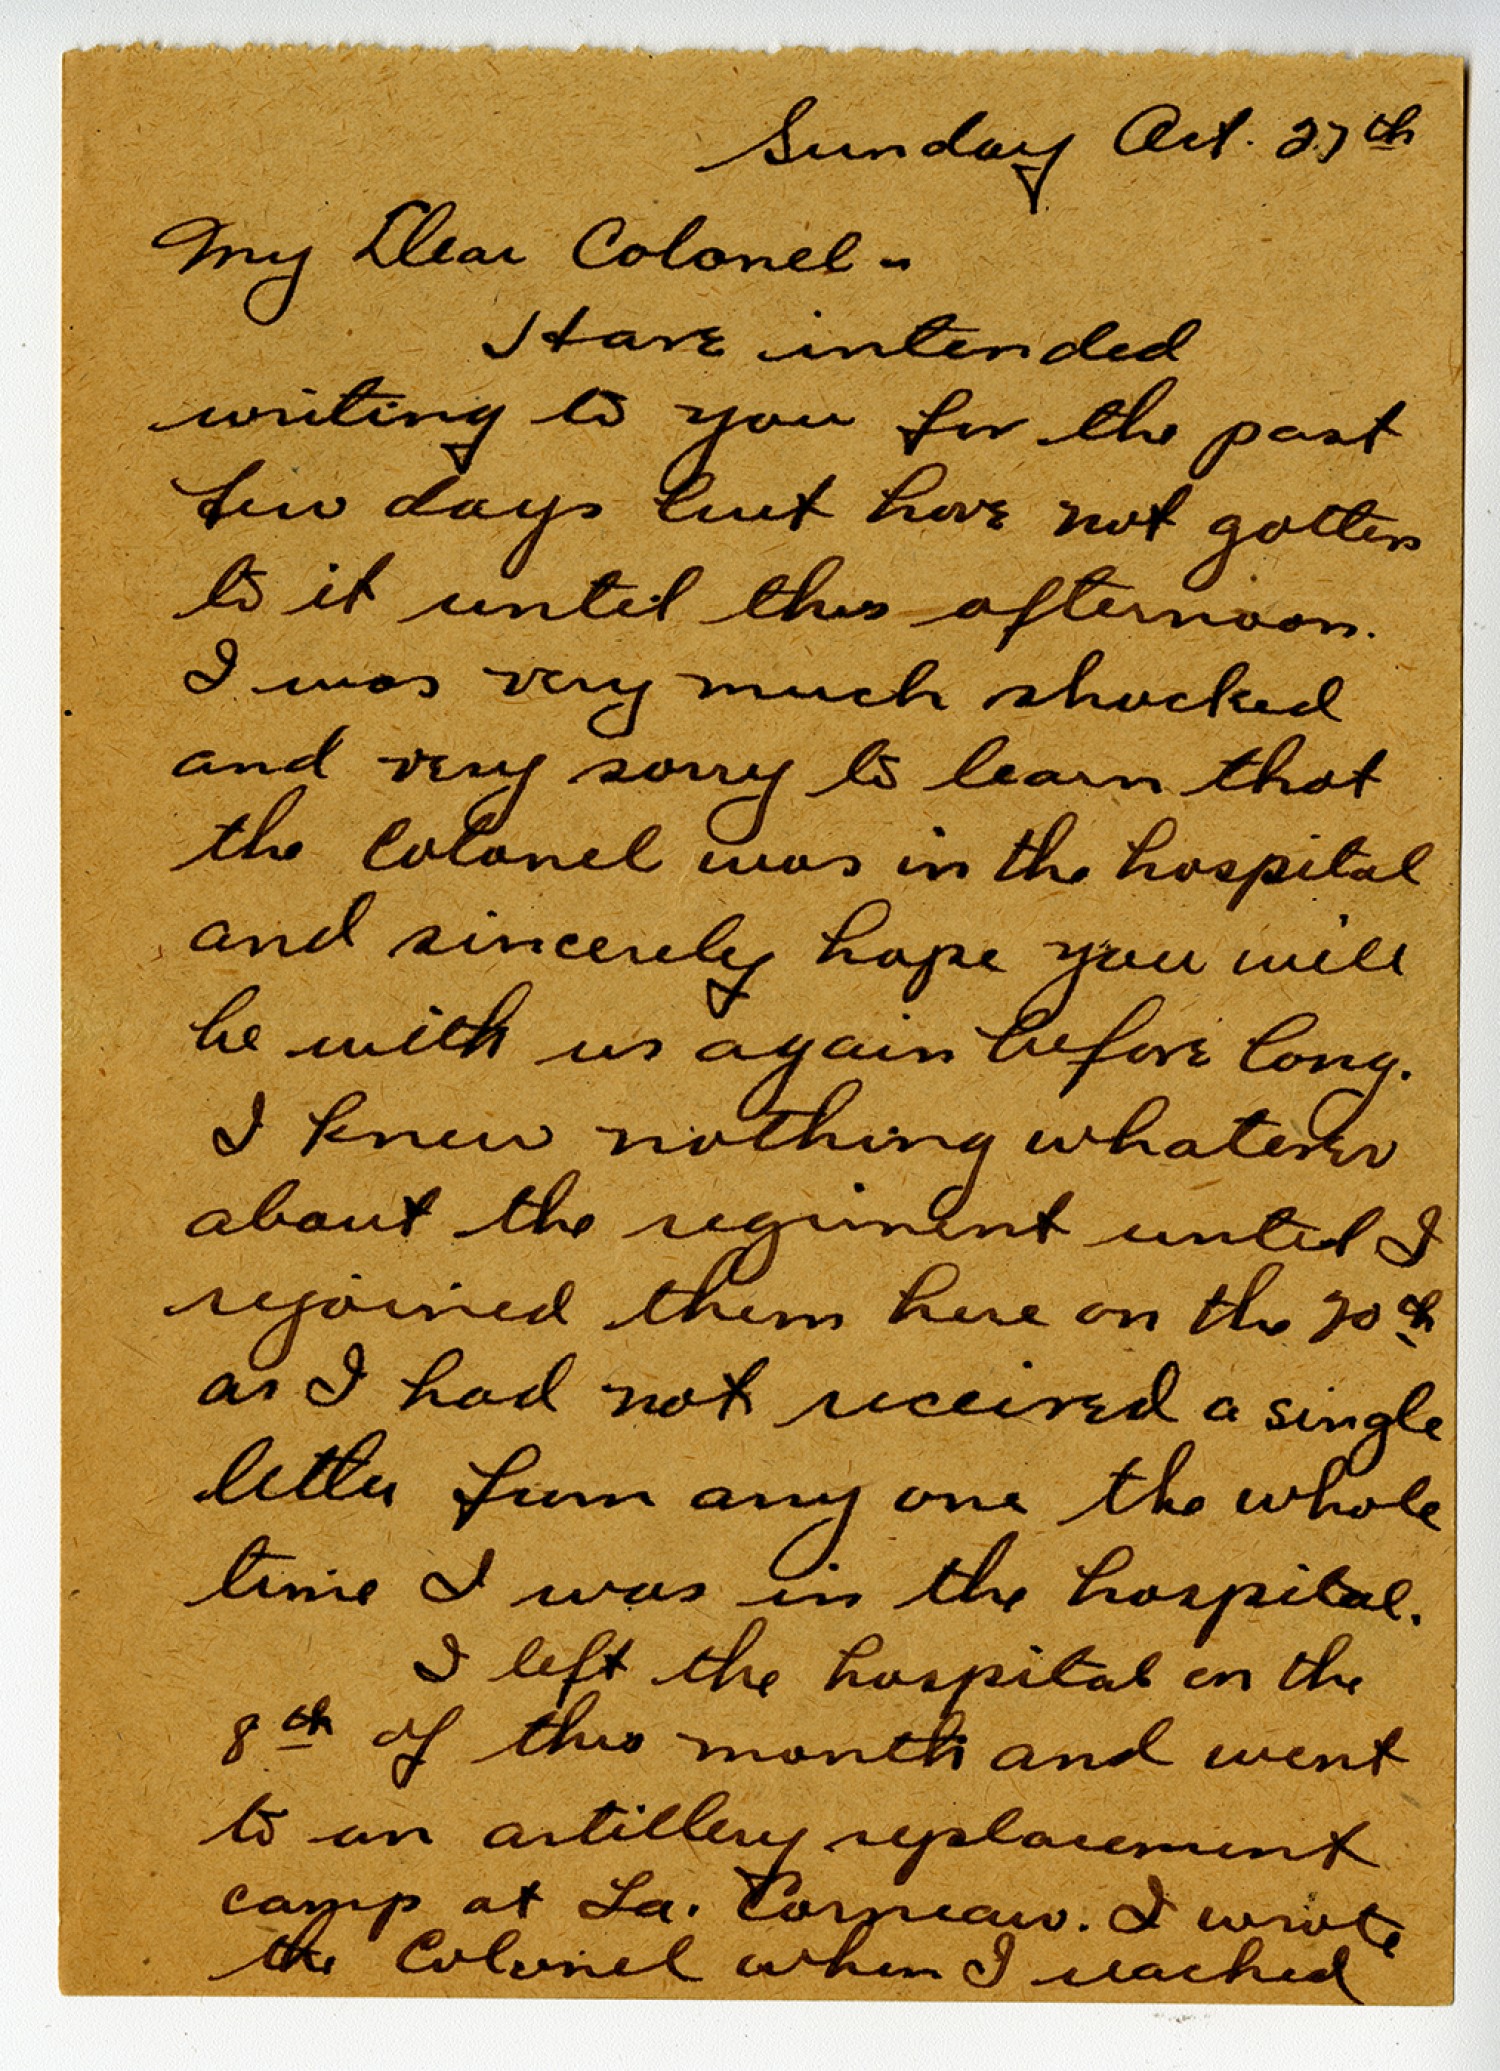 Sunday Oct. 27th
My Dear Colonel -
Have intended
writing to you for the past
few days but have not gotten
to it until this afternoon.
I was very much shocked
and very sorry to learn that
the Colonel was in the hospital
and sincerely hope you will
be with us again before long.
I knew nothing whatever
about the regiment until I
rejoined them here on the 20th
as I had not received a single
letter from any one the whole
time I was in the hospital.
I left the hospital on the
8th of this month and went
to an artillery replacement
camp at La. Corneau. I wrote
the Colonel when I reached